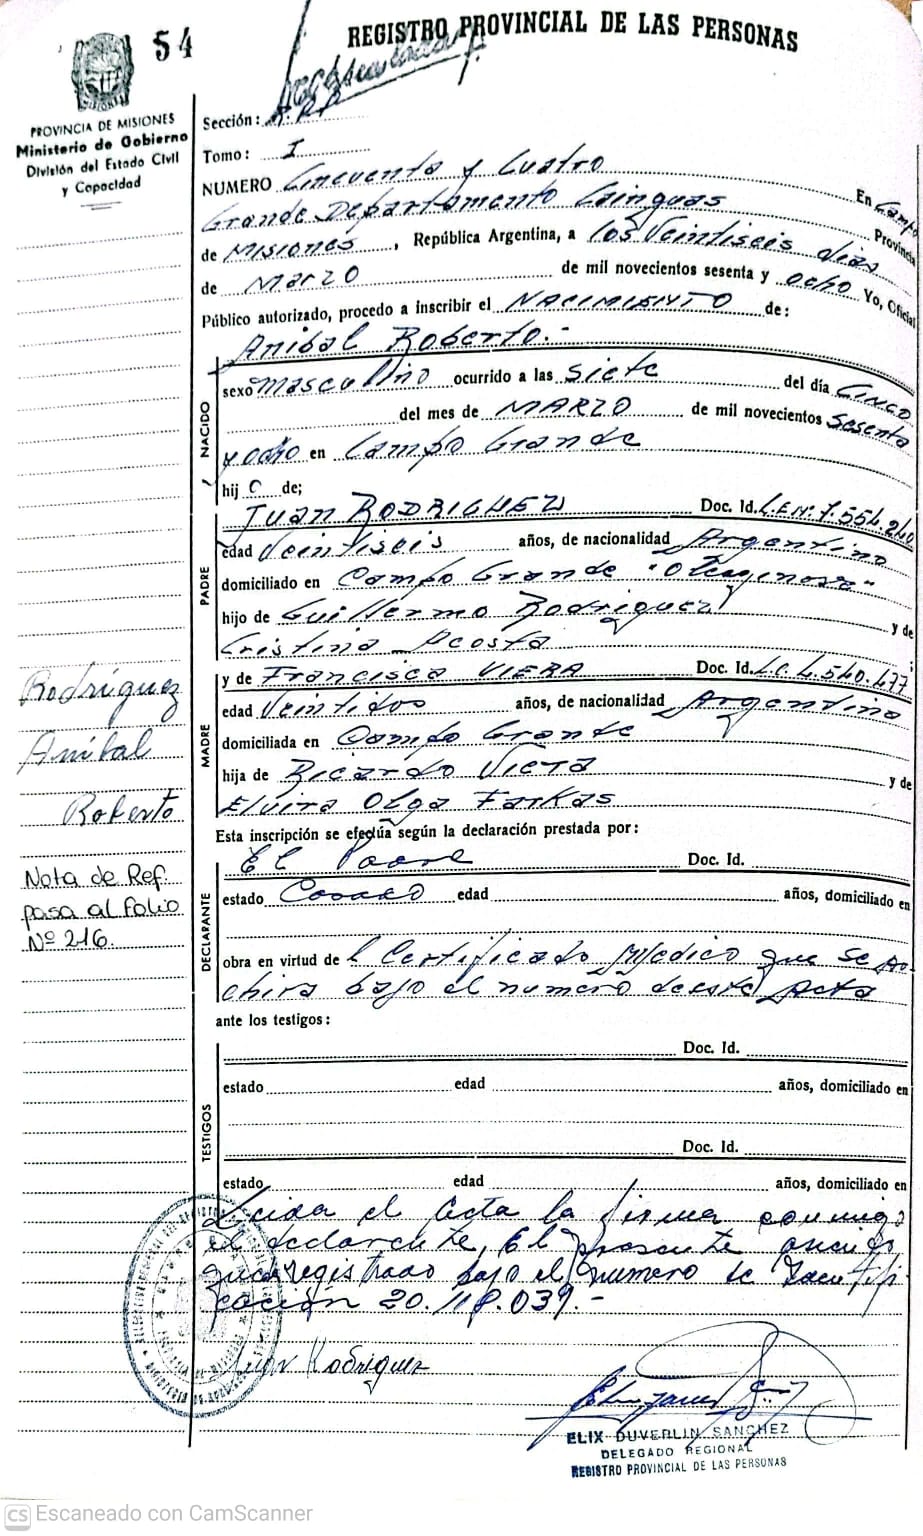 54
REGISTRO PROVINCIAL DE LAS PERSONAS
MISIONES
PROVINCIA DE MISIONES
Ministerio de Gobierno
División del Estado Civil
y Capacidad
Sección:
Tomo: I
NUMERO Cincuenta y Cuatro En Campo
Grande Departamento Cainguas Provincia
de Misiones, República Argentina, a los Veintiseis dias
de Marzo de mil novecientos sesenta y ocho Yo, Oficial
Público autorizado, procedo a inscribir el NACIMIENTO de:
Anibal Roberto.-
NACIDO
sexo Masculino ocurrido a las siete del día CINCO
del mes de MARZO de mil novecientos sesenta
y ocho en Campo Grande
hijo de;
PADRE
Juan RODRIGUEZ Doc. Id. L.E.Nº. 7.554.240
edad Veintiseis años, de nacionalidad Argentino
domiciliado en Campo Grande "Oleaginosa"
hijo de Guillermo Rodriguez y de
Cristina Acosta
MADRE
y de Francisca VIERA Doc. Id. L.C. 4.540.477
edad Veintidos años, de nacionalidad Argentina
domiciliada en Campo Grande
hija de Ricardo Viera y de
Elvira Olga Farkas
Rodríguez
Anibal
Roberto
Nota de Ref.
pasa al Folio
Nº 216.
Esta inscripción se efectúa según la declaración prestada por:
DECLARANTE
El Padre Doc. Id.
estado Casado edad años, domiciliado en
obra en virtud de l Certificado Medico que se ar-
chiva bajo el numero de esta Acta
ante los testigos:
TESTIGOS
Doc. Id.
estado edad años, domiciliado en
Doc. Id.
estado edad años, domiciliado en
Leida el Acta la firma conmigo
el declarante, El presente
registrado bajo el numero de Identifi-
cación 20.118.039.-
Juan Rodriguez
ELIX DUVERLIN SANCHEZ
DELEGADO REGIONAL
REGISTRO PROVINCIAL DE LAS PERSONAS
CS Escaneado con CamScanner